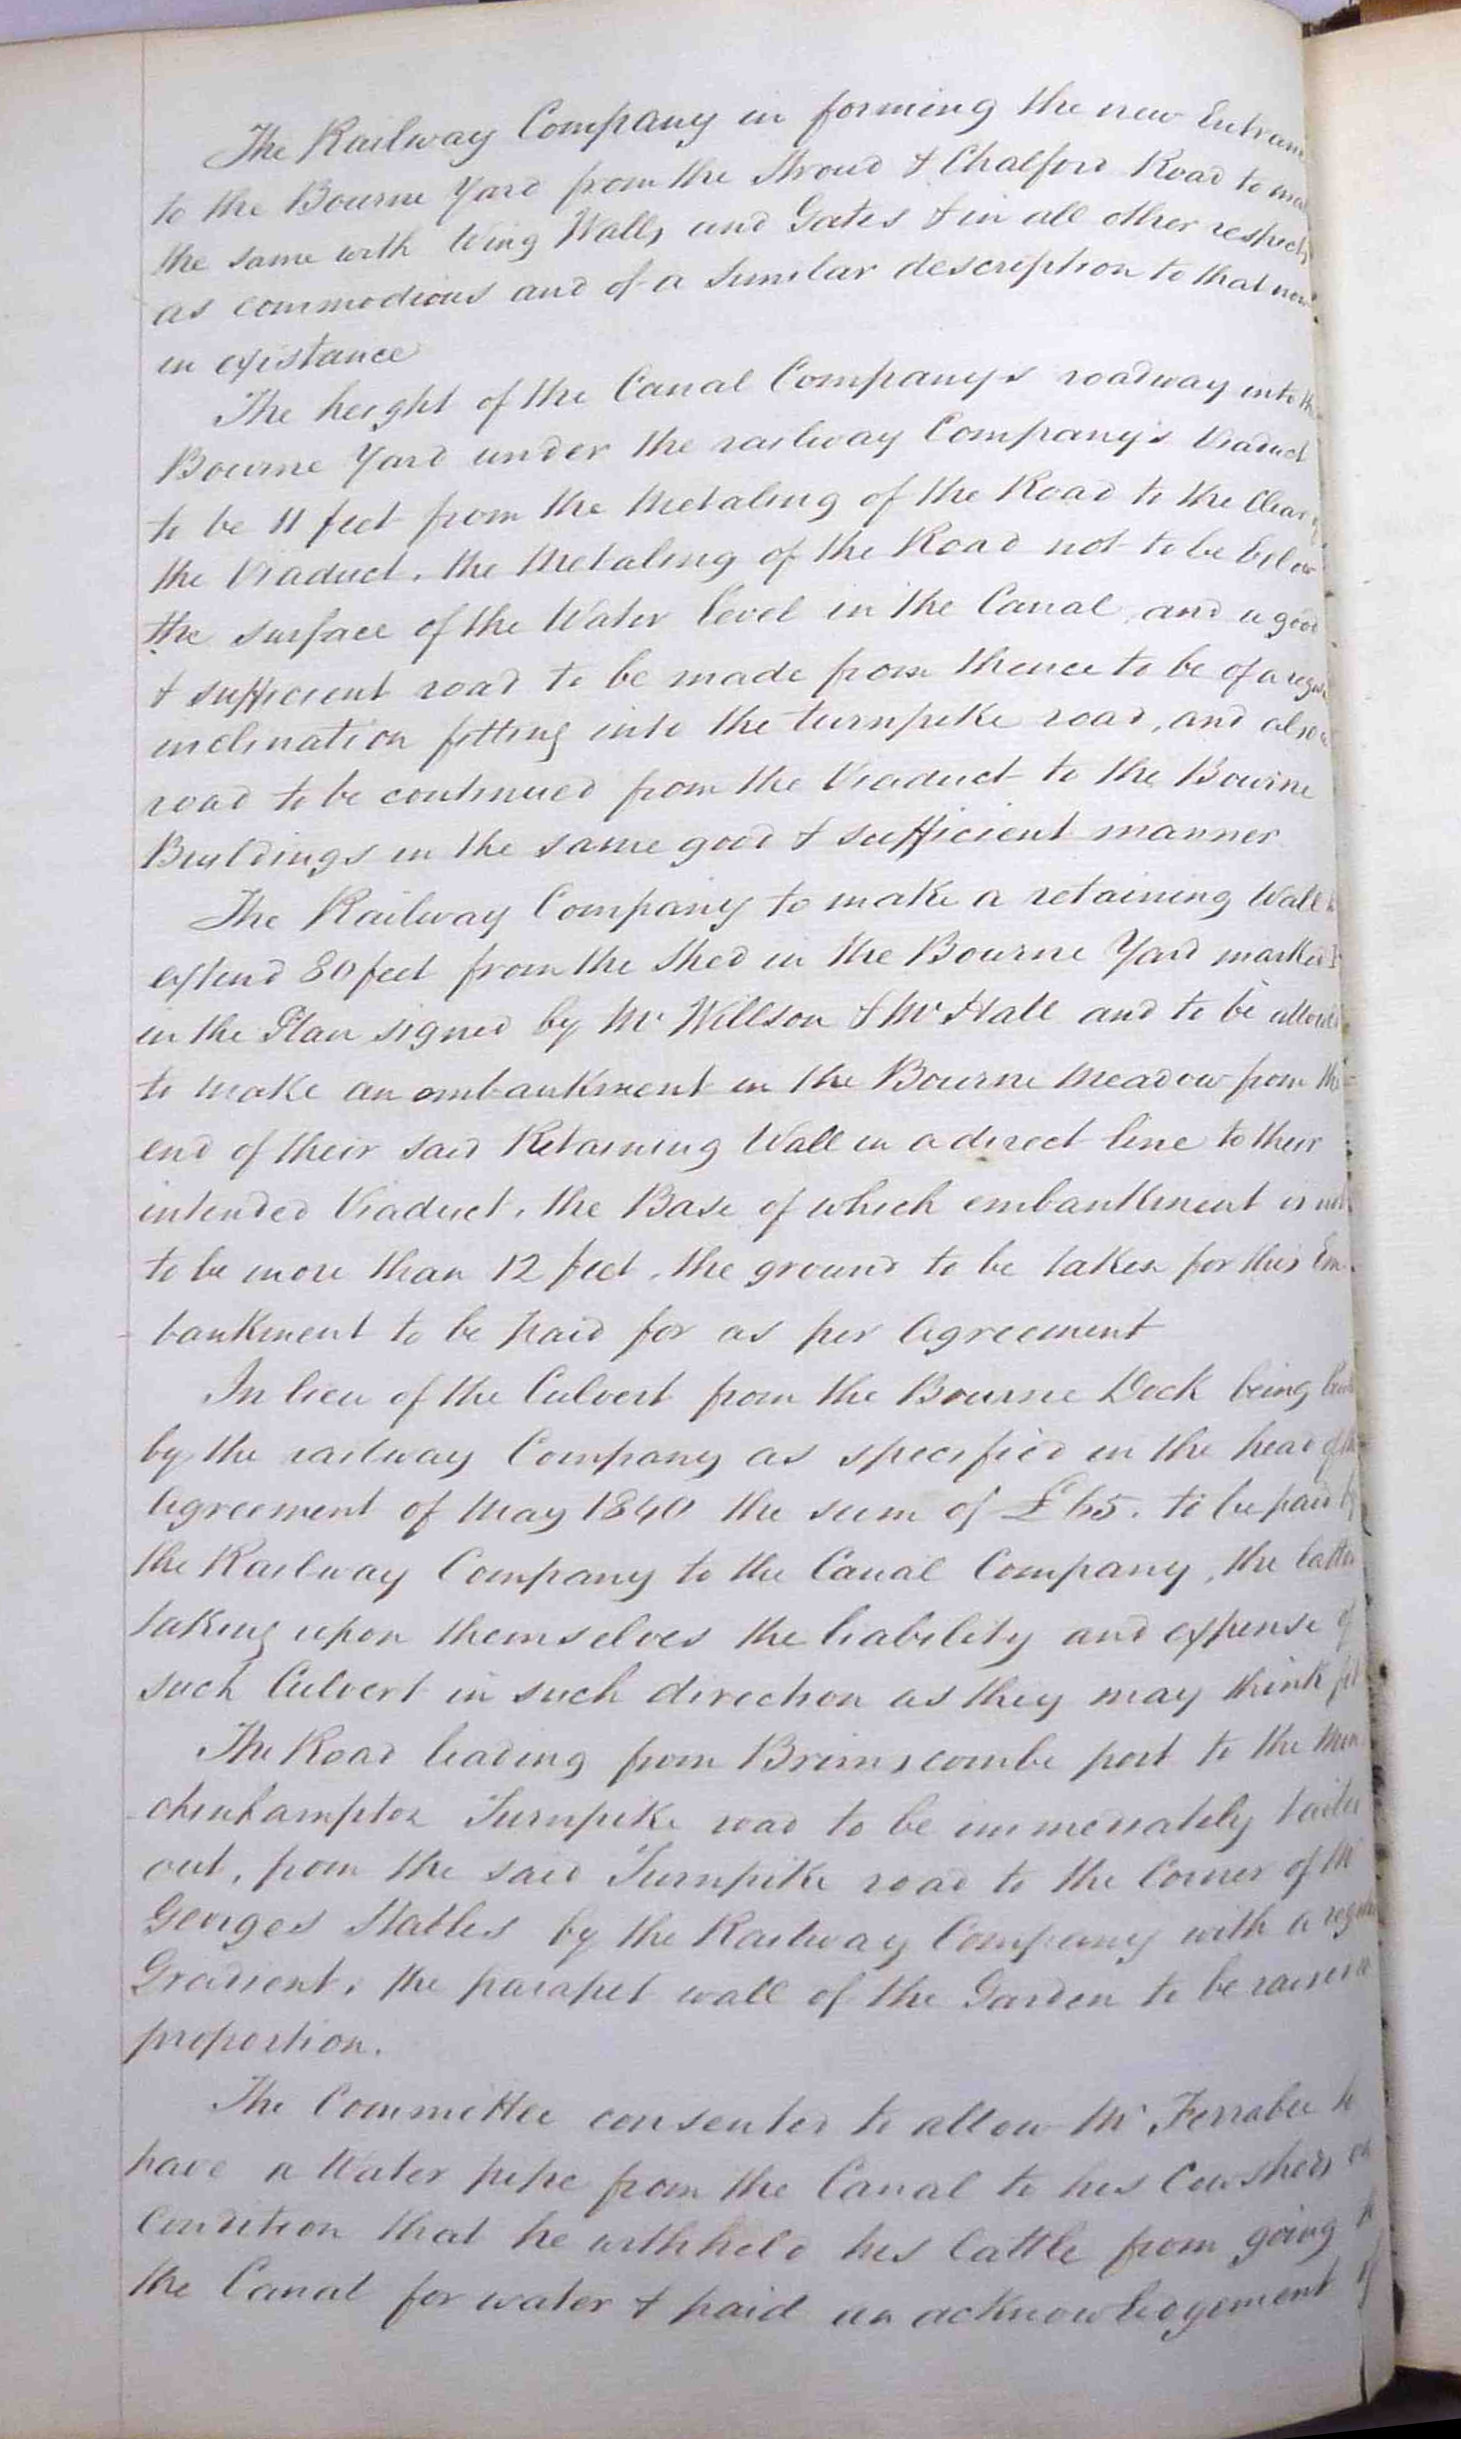 The Railway Company in forming the new Entran
to the Bourne Yard from the Stroud & Chalford Road to ma
the same with Wing Walls and Gates & in all other respects
as commodious and of a similar description to that now
in existance
The height of the Canal Company's roadway into th
Bourne Yard under the railway Company's Viaduct
to be 11 feet from the Metaling of the Road to the Clear
the Viaduct, the Metaling of the Road not to be below
the surface of the Water level in the Canal, and a good
& sufficient road to be made from thence to be of a regu
inclination fitting into the turnpike road, and also a
road to be continued from the Viaduct to the Bourne
Buildings in the same good & sufficient manner
The Railway Company to make a retaining Wall
extend 80 feet from the Shed in the Bourne Yard marked
in the Plan signed by Mr Willson & Mr Hall and to be allowed
to make an embankment in the Bourne Meadow from the
end of their said Retaining Wall in a direct line to their
intended Viaduct, the Base of which embankment is not
to be more than 12 feet, the ground to be taken for this Em-
bankment to be paid for as per Agreement
In lieu of the Culvert from the Bourne Dock being
by the railway Company as specified in the head of the
Agreement of May 1840 the sum of £65. to be paid by
the Railway Company to the Canal Company, the latter
taking upon themselves the liability and expense of
such Culvert in such direction as they may think fit
The Road leading from Brimscombe port to the Min
chinhampton Turnpike road to be immediately
out, from the said Turnpike road to the Corner of Mr
Georges Stables by the Railway Company with a regular
Gradient, the parapet wall of the Garden to be raised
proportion.
The Committee consented to allow Mr Ferrabee to
have a Water pipe from the Canal to his Cowsheds on
Condition that he withheld his Cattle from going to
the Canal for water & paid an acknowledgement of